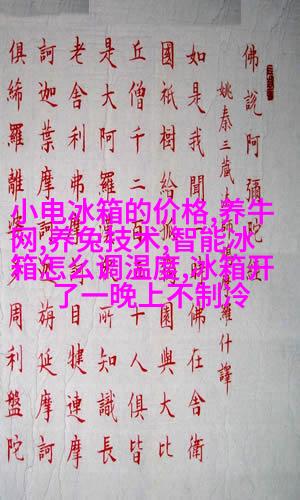 小电冰箱的价格,养牛
网,养兔技术,智能冰
箱怎么调温度,冰箱开
了一晚上不制冷
佛說阿彌陀經
姚秦三藏羅什譯
如是我聞一佛在舍衛
國祇樹給園與大比
丘僧千二百十人俱皆
是大阿羅所知識長
老舍利弗摩目犍連摩
訶迦葉摩訶旃延摩訶
俱絺羅離婆周利盤陀